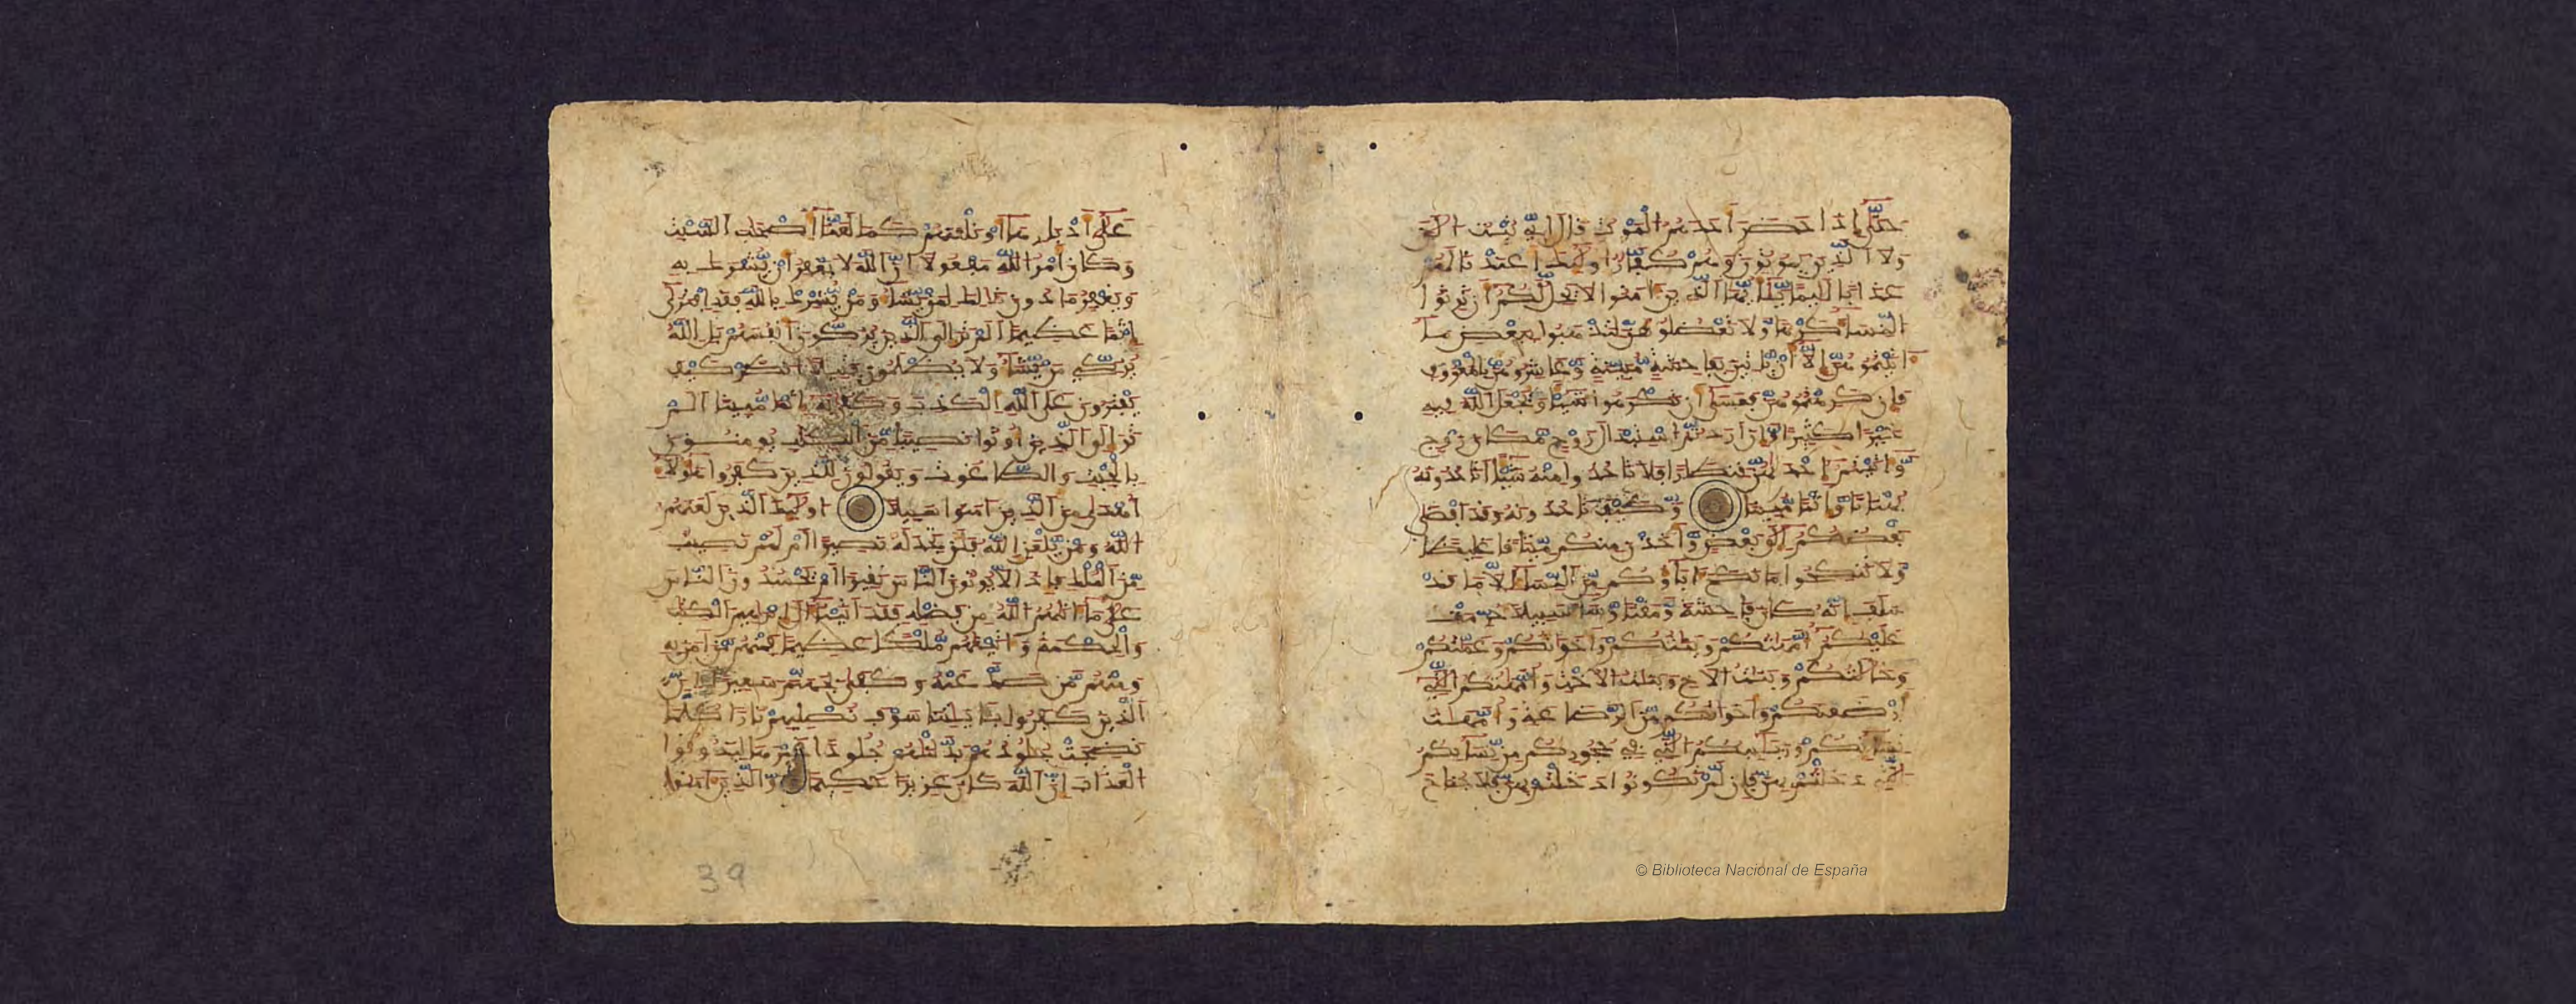 حتى إذا حضر أحدهم الموت قال إني تبت الآن
ولا الذين يموتون وهم كفار أولئك أعتدنا لهم
عذابا أليما يأيها الذين آمنوا لا يحل لكم أن ترثوا
النساء كرها ولا تعضلوهن لتذهبوا ببعض ما
آتيتموهن إلا أن يأتين بفاحشة مبينة وعاشروهن بالمعروف
فإن كرهتموهن فعسى أن تكرهوا شيئا ويجعل الله فيه
خيرا كثيرا وإن أردتم استبدال زوج مكان زوج
وآتيتم إحديهن قنطارا فلا تأخذوا منه شيئا أتأخذونه
بهتنا وإثما مبينا وكيف تأخذونه وقد أفضى
بعضكم إلى بعض وأخذن منكم ميثقا غليظا
ولا تنكحوا ما نكح آباؤكم من النساء إلا ما قد
سلف إنه كان فحشة ومقتا وساء سبيلا حرمت
عليكم أمهتكم وبنتكم وأخواتكم وعمتكم
وخالتكم وبنت الأخ وبنت الأخت وأمهتكم التي
أرضعنكم وأخواتكم من الرضاعة وأمهت
نسائكم وربائبكم التي في حجوركم من نسائكم
التي دخلتم بهن فإن لم تكونوا دخلتم بهن فلا جناح
على أدبارها أو نلعنهم كما لعنا أصحاب السبت
وكان أمر الله مفعولا إن الله لا يغفر أن يشرك به
ويغفر ما دون ذلك لمن يشاء ومن يشرك بالله فقد افترى
إثما عظيما ألم تر إلى الذين يزكون أنفسهم بل الله
يزكي من يشاء ولا يظلمون فتيلا انظر كيف
يفترون على الله الكذب وكفى به إثما مبينا ألم
تر إلى الذين أوتوا نصيبا من الكتب يومنون
بالجبت والطاغوت ويقولون للذين كفروا هؤلاء
أهدى من الذين آمنوا سبيلا أولئك الذين لعنهم
الله ومن يلعن الله فلن تجد له نصيرا أم لهم نصيب
من الملك فإذا لا يوتون الناس نقيرا أم يحسدون الناس
على ما آتيهم الله من فضله فقد آتينا آل إبرهيم الكتب
والحكمة وآتينهم ملكا عظيما فمنهم من آمن به
ومنهم من صد عنه وكفى بجهنم سعيرا إن
الذين كفروا بآيتنا سوف نصليهم نارا كلما
نضجت جلودهم بدلنهم جلودا غيرها ليذوقوا
العذاب إن الله كان عزيزا حكيما والذين آمنوا
39
© Biblioteca Nacional de España